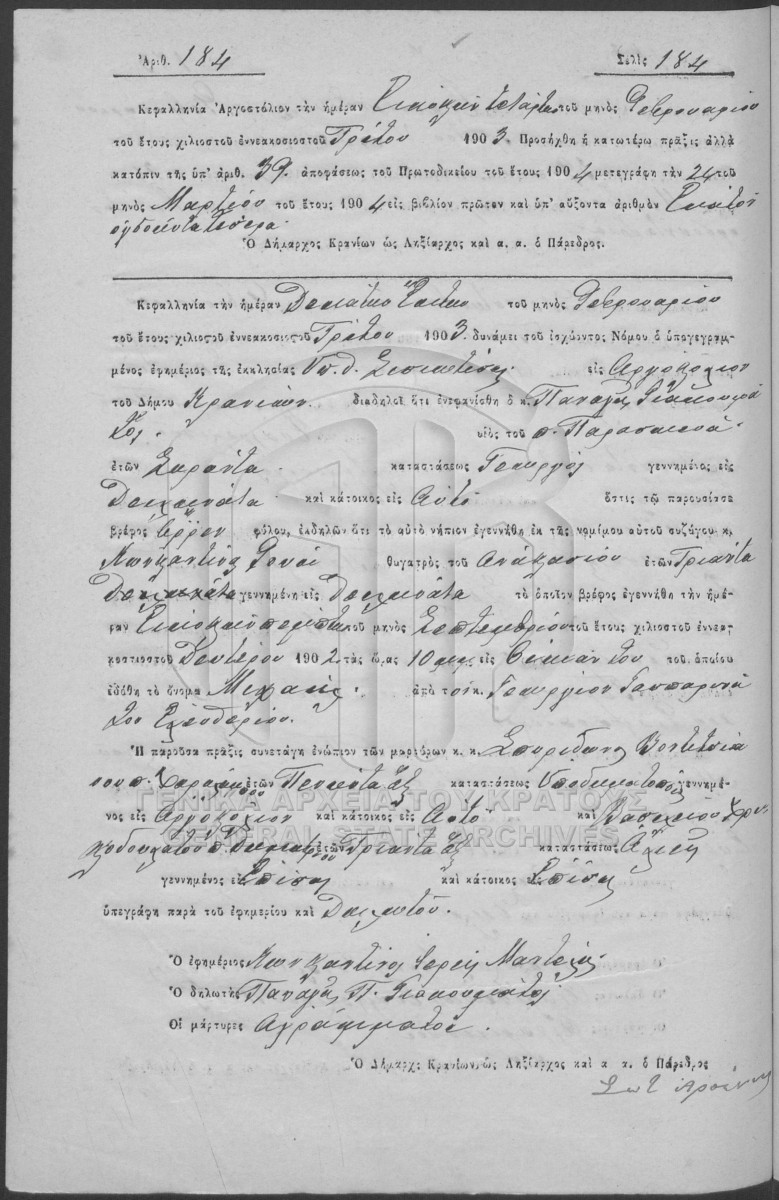 Ἀριθ. 184 Σελὶς 184
Κεφαλληνία Ἀργοστόλιον τὴν ἡμέραν Εἰκοστὴν τετάρτην τοῦ μηνὸς Φεβρουαρίου
τοῦ ἔτους χιλιοστοῦ ἐννεακοσιοστοῦ Τρίτου 1903. Προσήχθη ἡ κατωτέρω πρᾶξις ἀλλὰ
κατόπιν τῆς ὑπ' ἀριθ. 39 ἀποφάσεως τοῦ Πρωτοδικείου τοῦ ἔτους 1904 μετεγράφη τὴν 24 τοῦ
μηνὸς Μαρτίου τοῦ ἔτους 1904 εἰς βιβλίον πρῶτον καὶ ὑπ' αὔξοντα ἀριθμὸν Ἑκατὸν
ὀγδοήκοντα τέσσερα
Ὁ Δήμαρχος Κρανίων ὡς Ληξίαρχος καὶ α. α. ὁ Πάρεδρος.
Κεφαλληνία τὴν ἡμέραν Δεκάτην Ἕκτην τοῦ μηνὸς Φεβρουαρίου
τοῦ ἔτους χιλιοστοῦ ἐννεακοσιοστοῦ Τρίτου 1903. δυνάμει τοῦ ἰσχύοντος Νόμου ὁ ὑπογεγραμ-
μένος ἐφημέριος τῆς ἐκκλησίας Ὑπ. Θ. Σισιωτίσσης εἰς Ἀργοστόλιον
τοῦ Δήμου Κρανίων διαδηλοῖ ὅτι ἐνεφανίσθη ὁ κ. Παναγῆς Γιακουμά
τος υἱὸς τοῦ π. Παρασκευᾶ
ἐτῶν Σαράντα καταστάσεως Γεωργὸς γεννημένος εἰς
Δειλινάτα καὶ κάτοικος εἰς Αὐτό ὅστις τῷ παρουσίασε
βρέφος ἄρρεν φύλου, ἐκδηλῶν ὅτι τὸ αὐτὸ νήπιον ἐγεννήθη ἐκ τῆς νομίμου αὐτοῦ συζύγου κ.
Κωνσταντίνας θυγατρὸς τοῦ Ἀναστασίου ἐτῶν Τριάντα
γεννημένη εἰς Δειλινάτα τὸ ὁποῖον βρέφος ἐγεννήθη τὴν ἡμέ-
ραν Εἰκοστὴν πέμπτην τοῦ μηνὸς Σεπτεμβρίου τοῦ ἔτους χιλιοστοῦ ἐννεα-
κοσιοστοῦ Δευτέρου 1902 τὰς ὥρας 10 μ.μ. εἰς Οἰκίαν του τοῦ ὁποίου
ἐδόθη τὸ ὄνομα Μιχαήλ. ἀπὸ τὸν κ. Γεώργιον
του Ἐλευθερίου.
Ἡ παροῦσα πρᾶξις συνετάγη ἐνώπιον τῶν μαρτύρων κ. κ. Σπυρίδωνος
που π. Χαραλάμπου ἐτῶν Πενῆντα ἓξ καταστάσεως Ὑποδηματοποιὸς γεννημέ-
νος εἰς Ἀργοστόλιον καὶ κάτοικος εἰς Αὐτό καὶ Βασιλείου
π. Δημητρίου ἐτῶν Τριάντα ἓξ καταστάσεως
γεννημένος εἰς Ἐπίσης καὶ κάτοικος εἰς Ἐπίσης
ὑπεγράφη παρὰ τοῦ ἐφημερίου καὶ Δηλωτοῦ.
ΓΕΝΙΚΑ ΑΡΧΕΙΑ ΤΟΥ ΚΡΑΤΟΥΣ
GENERAL STATE ARCHIVES
Ὁ ἐφημέριος Κωνσταντῖνος Ἱερεὺς
Ὁ δηλωτὴς Παναγῆς Π. Γιακουμάτος
Οἱ μάρτυρες Ἀγράμματοι.
Ὁ Δήμαρχος Κρανίων, ὡς Ληξίαρχος καὶ α α. ὁ Πάρεδρος